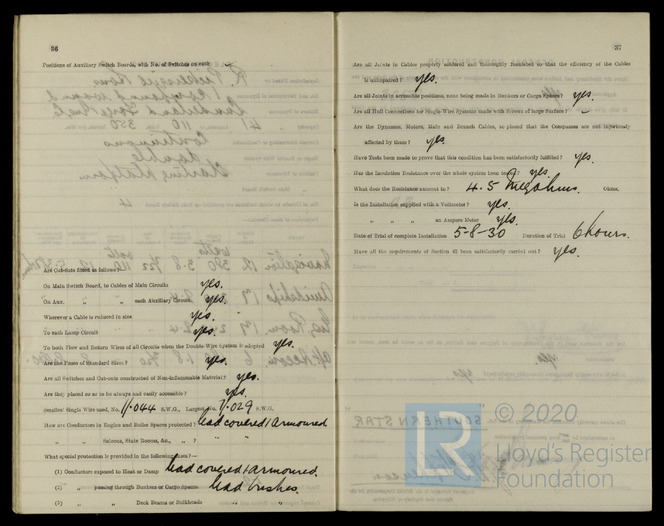 36
Positions of Auxiliary Switch Boards, with No. of Switches on each
Are Cut-Outs fitted as follows:
On Main Switch Board, to Cables of Main Circuits yes.
On Aux. " " each Auxiliary Circuit yes.
Wherever a Cable is reduced in size yes.
To each Lamp Circuit yes.
To both Flow and Return Wires of all Circuits when the Double-Wire System is adopted yes.
Are the Fuses of Standard Sizes? yes.
Are all Switches and Cut-outs constructed of Non-inflammable Material? yes.
Are they placed so as to be always and easily accessible? yes.
Smallest Single Wire used, No. 1/.044 S.W.G., Largest, No. 7/.029 S.W.G.
How are Conductors in Engine and Boiler Spaces protected? lead covered & armoured
" " Saloons, State Rooms, &c., " ? "
What special protection is provided in the following cases?—
(1) Conductors exposed to Heat or Damp lead covered & armoured.
(2) " passing through Bunkers or Cargo Spaces lead bushes.
(3) " " Deck Beams or Bulkheads " "
37
Are all Joints in Cables properly soldered and thoroughly insulated so that the efficiency of the Cables
is unimpaired? yes.
Are all Joints in accessible positions, none being made in Bunkers or Cargo Spaces? yes.
Are all Hull Connections for Single-Wire Systems made with Screws of large Surface? –
Are the Dynamos, Motors, Main and Branch Cables, so placed that the Compasses are not injuriously
affected by them? yes.
Have Tests been made to prove that this condition has been satisfactorily fulfilled? yes.
Has the Insulation Resistance over the whole system been tested? yes.
What does the Resistance amount to? 4.5 Megohms. Ohms.
Is the Installation supplied with a Voltmeter? yes.
" " " an Ampere Meter yes.
Date of Trial of complete Installation 5-8-30 Duration of Trial 6 hours.
Have all the requirements of Section 42 been satisfactorily carried out? yes.
LR
© 2020
Lloyd's Register
Foundation